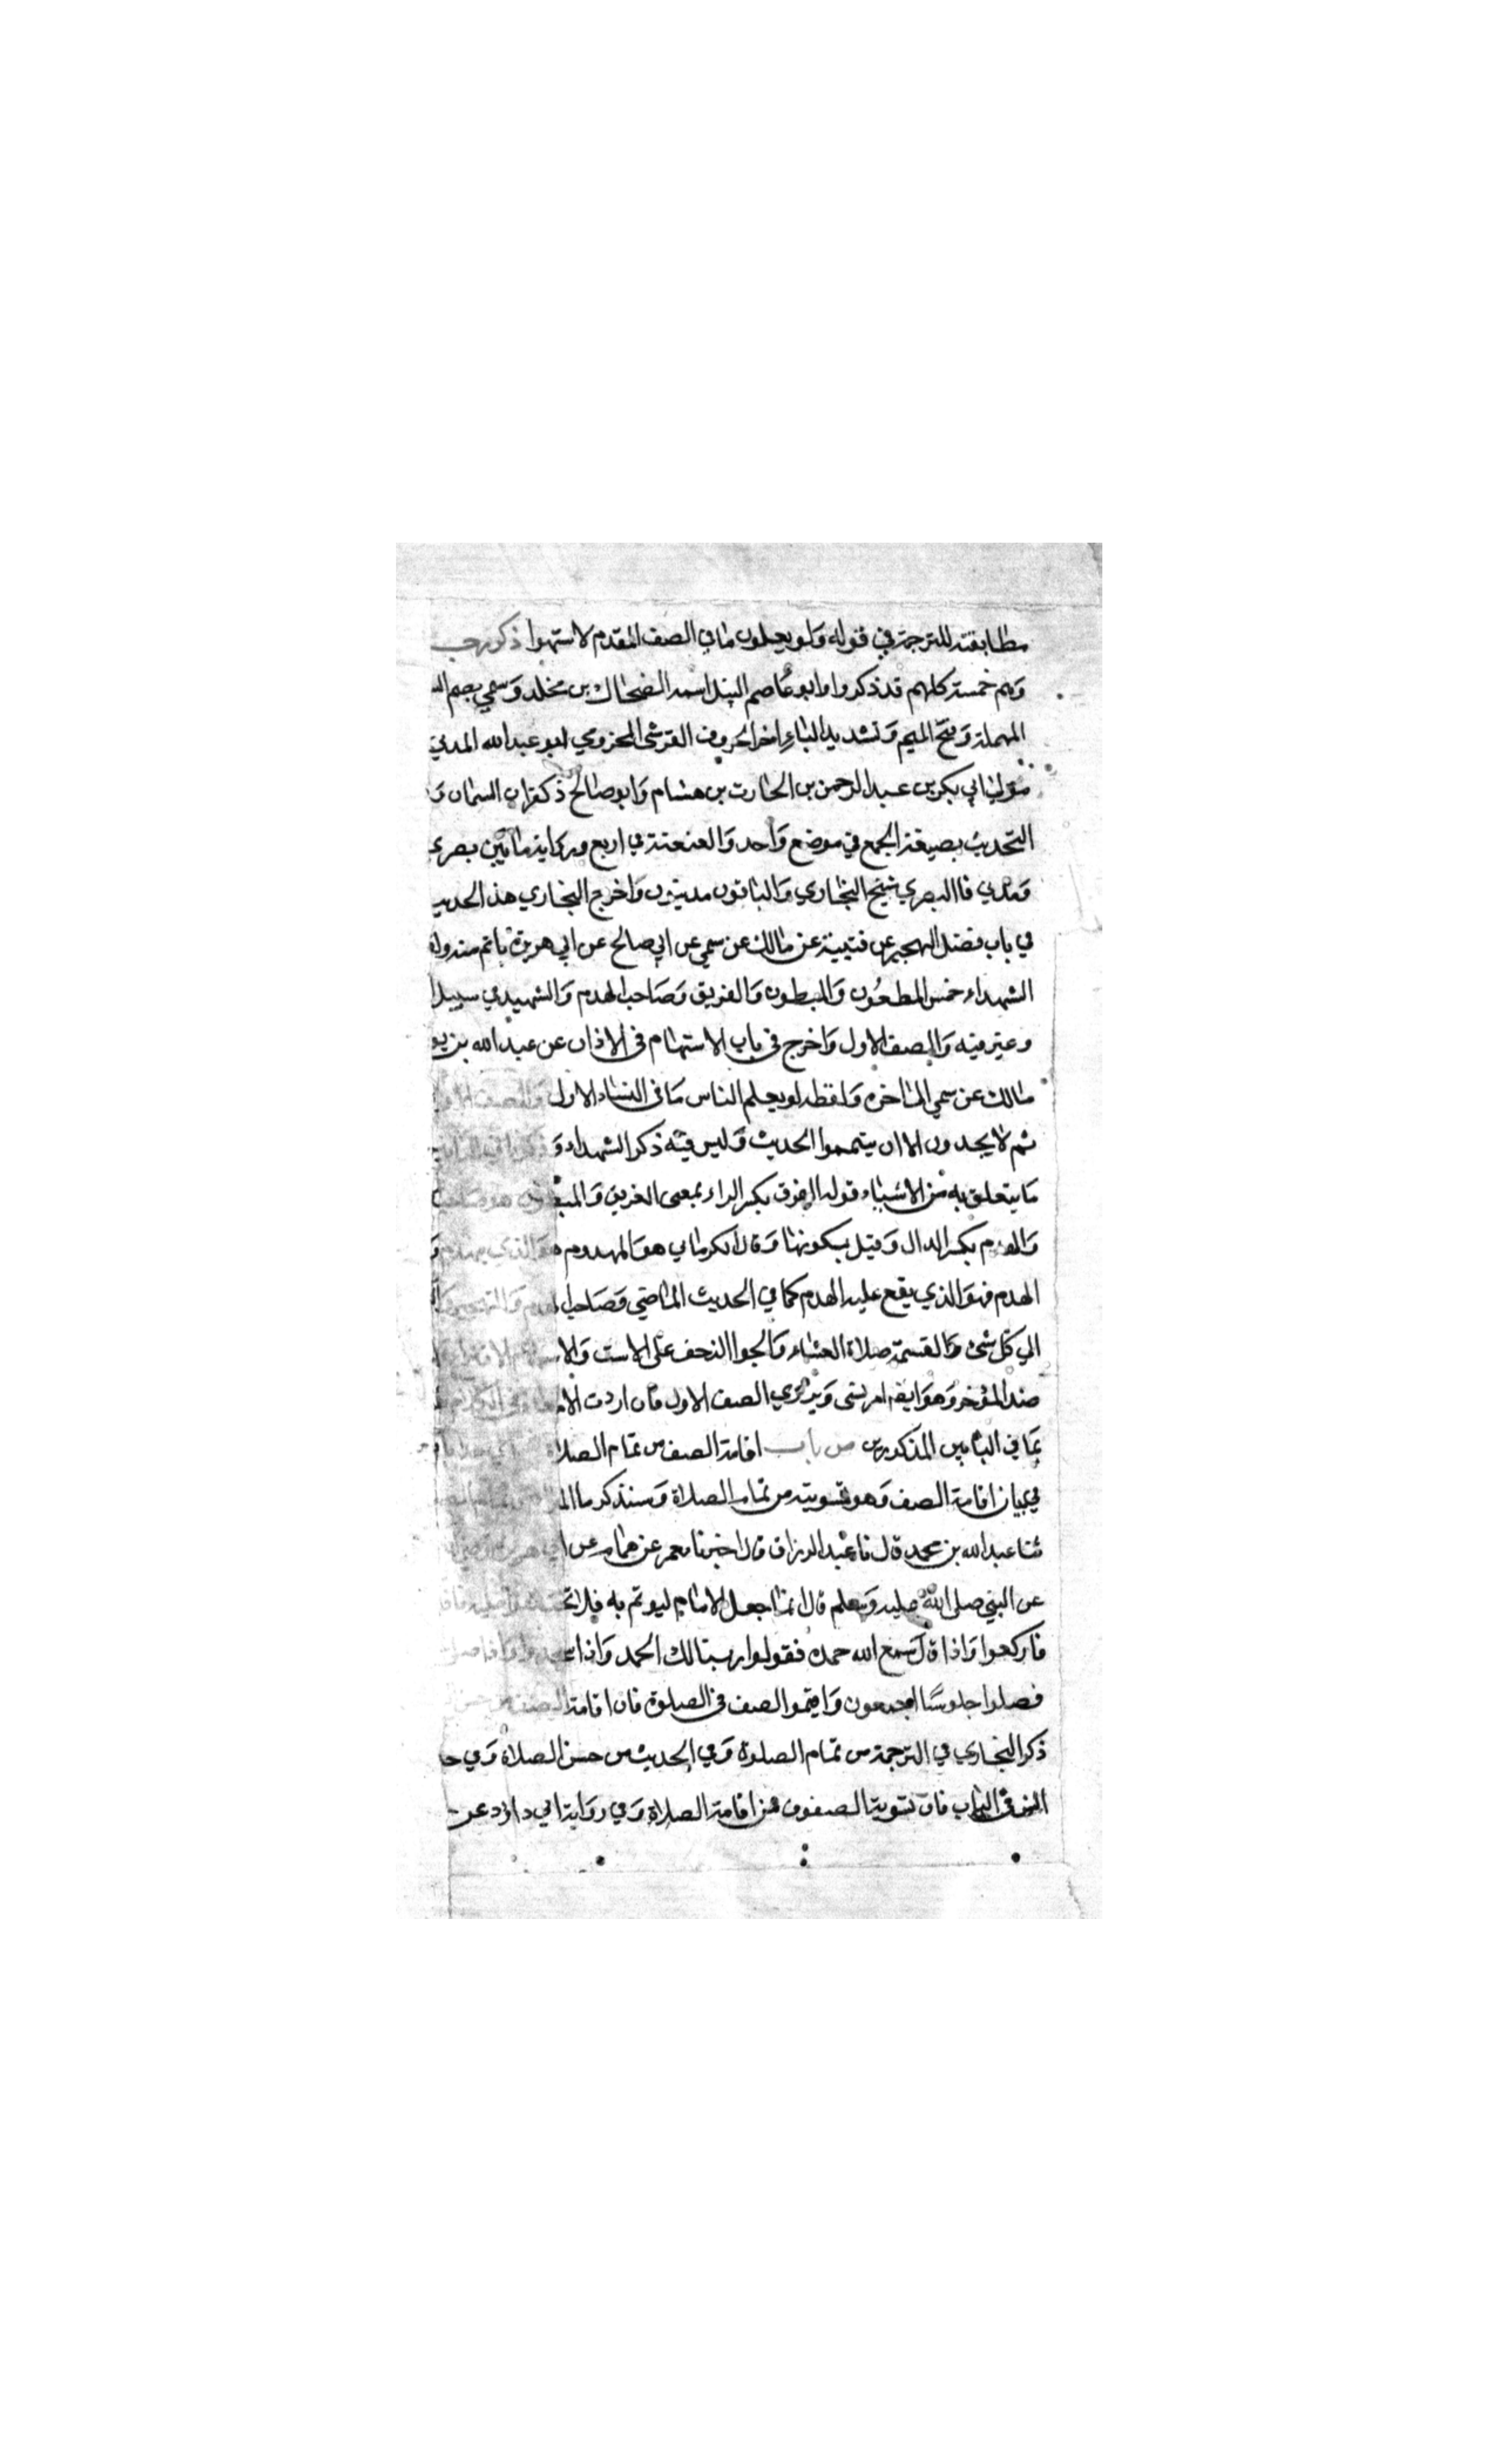 مطابقته للترجمة في قوله ولو يعلون ما في الصف المقدم لاستهوا ذكر
وهم خمسة كلهم قد ذكروا وابو عاصم النبيل اسمه الضحاك بن مخلد وسمي بضم
المهملة وفتح الميم وتشديد الياء اخر الحروف القرشى المخزومي ابو عبد الله المدني
مولي ابي بكر بن عبد الرحمن بن الحارت بن هشام وابو صالح ذكوان السمان و
التحديث بصيغة الجمع في موضع واحد والعنعنة في اربع ورواية ما بين بصري
ومدني فاالبصري شيخ البخاري والباقون مدينون واخرج البخاري هذ الحديـ
في باب فضل التهجير عن قتيبة عن مالك عن سمي عن ابي صالح عن ابي هريرة باتم منه وله
الشهداء خمس المطعون والمبطون والغريق وصاحب الهدم والشهيد في سبيل ا
وغير فيه والصف الاول واخرج في باب الاستهام في الاذان عن عبد الله بن يو
مالك عن سمي الى اخره ولفظه لو يعلم الناس ما في النداء الاول والصف
ثم لا يجدون الا ان يتمموا الحديث وليس فيه ذكر الشهداء و
ما يتعلق به من الاشياء قوله الغرق بكسر الراء بمعنى الغريق والمبطون هو صاحب
والهدم بكسر الدال وقيل بسكونها وقال الكرماني هو المهدوم هو الذي يهدم و
الهدم فهو الذي يقع عليه الهدم كما في الحديث الماضي وصاحب الهدم والتهجير
الي كل شئ والعتمة صلاة العشاء والحبوا الزحف على الاست والاستهام الاقتراع
ضد المؤخر وهو ايضا امر نسبى ويروي الصف الاول فان اردت الامعان في الكلام
بما في البابين المذكورين ص باب اقامة الصف من تمام الصلاة
في بيان اقامة الصف وهو تسويته من تمام الصلاة وسنذكر ما
ثنا عبد الله بن محمد قال نا عبد الرزاق قال اخبرنا معمر عن همام عن ابي هريرة
عن النبي صلى الله عليه وسلم قال انما جعل الامام ليوتم به فلا تختلفوا عليه فاذ
فاركعوا واذا قال سمع الله حمده فقولوا ربنا لك الحمد واذا سجد
فصلوا جلوسًا اجمعون واقيموا الصف في الصلوة فان اقامة الصف من حسن
ذكر البخاري في الترجمة من تمام الصلوة وفي الحديث من حسن الصلاة وفي حـ
انس في الباب فان تسوية الصفوف من اقامة الصلاة وفي رواية ابي داؤد عن